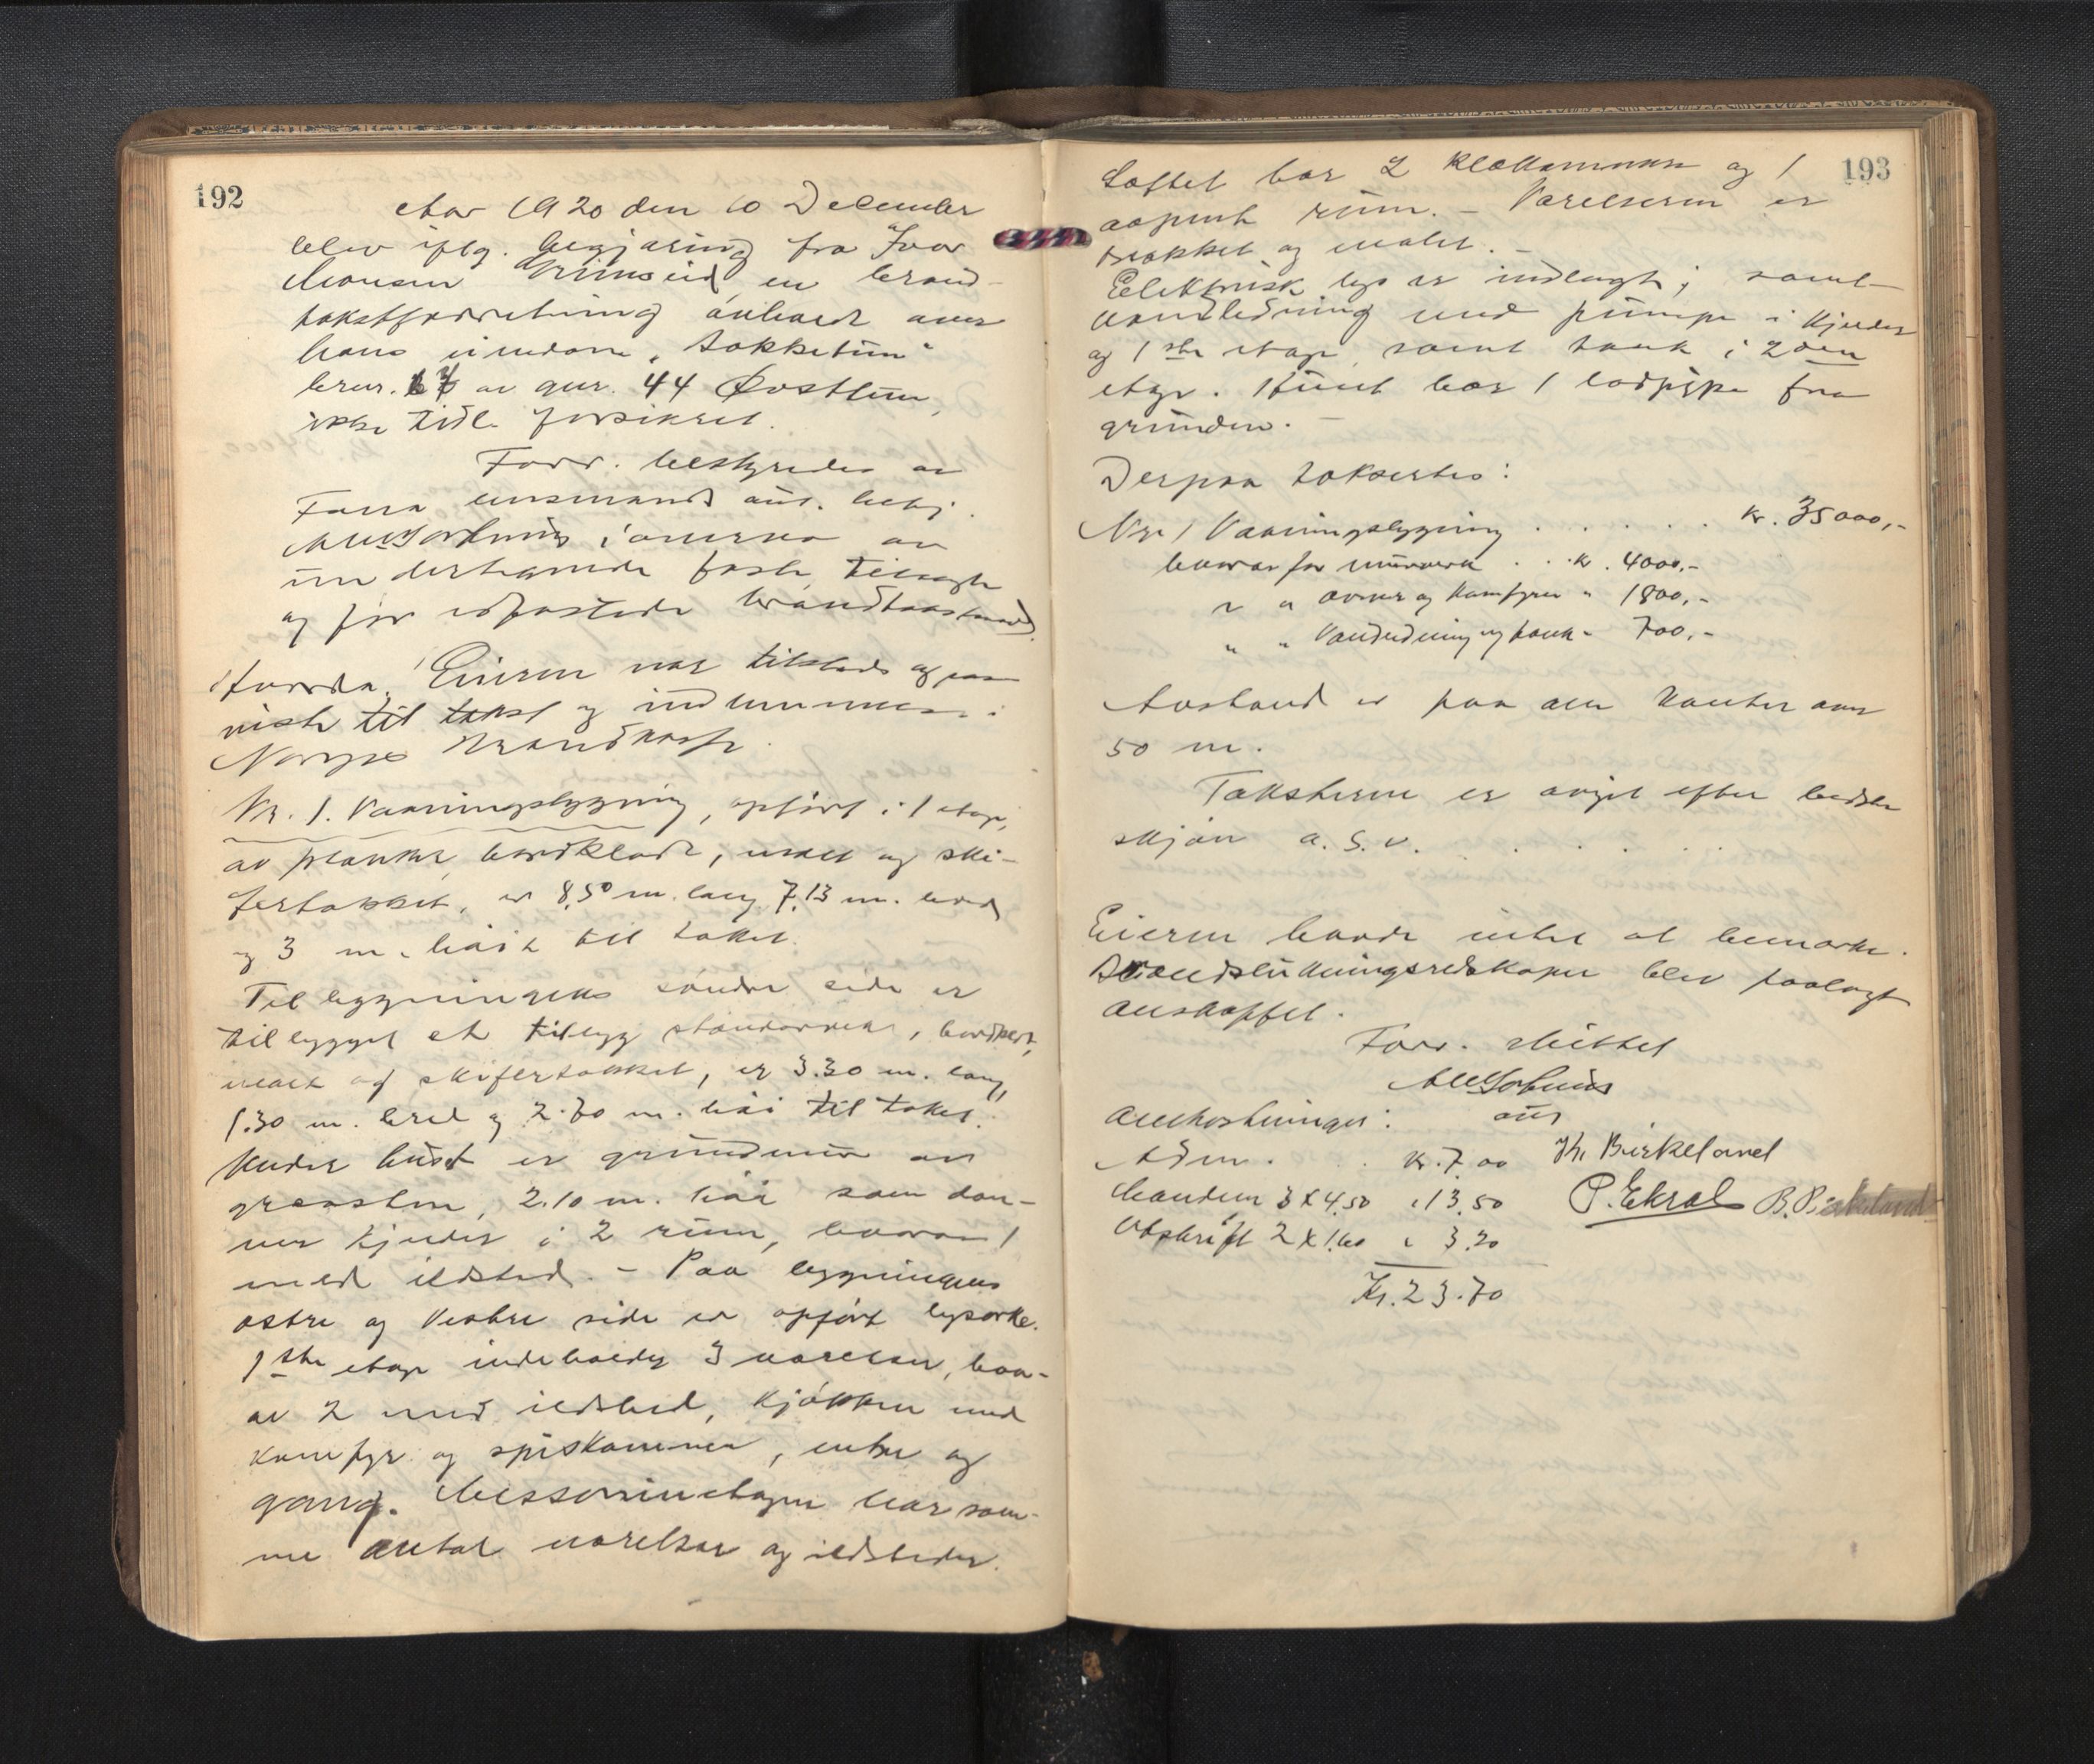 192
Aar 1920 den 10 December
blev iflg. begjæring fra Ivar
Monsen Grimseid en brand-
takstforretning avholdt over
hans eiendom „
brnr. av gnr. 44 Øvsttun,
ikke tidl. forsikret.
Forr. bestyredes av
Fana lensmand aut. betj.
i overvær av
undertegnede faste tilsagte
og før edfæstede brandtaxtmænd
Eieren var tilstede og paa-
viste til takst og indlemmelse i
Norges Brandkasse.
Nr. 1. Vaaningsbygning, opført i 1 etage,
av planker, bordklædt, malt og ski-
fertækket, er 8,50 m. lang 7,13 m. bred
og 3 m. høi til taket.
Til bygningens søndre side er
tilbygget et tilbygg standerverk, bordklædt,
malt og skifertækket, er 3.30 m. lang,
1.30 m. bred og 2.70 m. høi til taket.
Under huset er grundmur av
graasten, 2.10 m. høi som dan-
ner kjelder i 2 rum, hvorav 1
med ildsted. – Paa bygningens
østre og vestre side er opført lysarke.
1ste etage indeholder 3 værelser, hvor-
av 2 med ildsted, kjøkken med
komfyr og spiskammer, entre og
gang. Messaninetagen har sam-
me antal værelser og ildsteder.
193
Loftet har 2 klækammere og 1
aapent rum. – Værelserne er
trækket og malet. –
Elektrisk lys er indlagt; samt
vandledning med pumpe i kjelder
og 1ste etage samt tank i 2den
etage. Huset har 1 lodpipe fra
grunden. –
Derpaa taksertes:
Nye 1 Vaaningsbygning . . . . . . kr. 35000,-
hvorav for murverk . . . kr. 4000,-
" " ovner og komfyrer " 1800,-
" " Vandledning og tank " 700,-
Avstand er paa alle kanter over
50 m.
Taksterne er avgit efter bedste
skjøn a. s. v. . . . . .
Eieren havde intet at bemærke.
Brandslukningsredskaper blev paalagt
anskaffet.
Forr. sluttet
aut
Omkostninger:
Adm. . . kr. 7.00
Manden 3 x 4.50 " 13.50
Avskrift 2 x 1.60 " 3.20
Kr. 23.70
Birkeland
P. Ekrol B. Birkeland